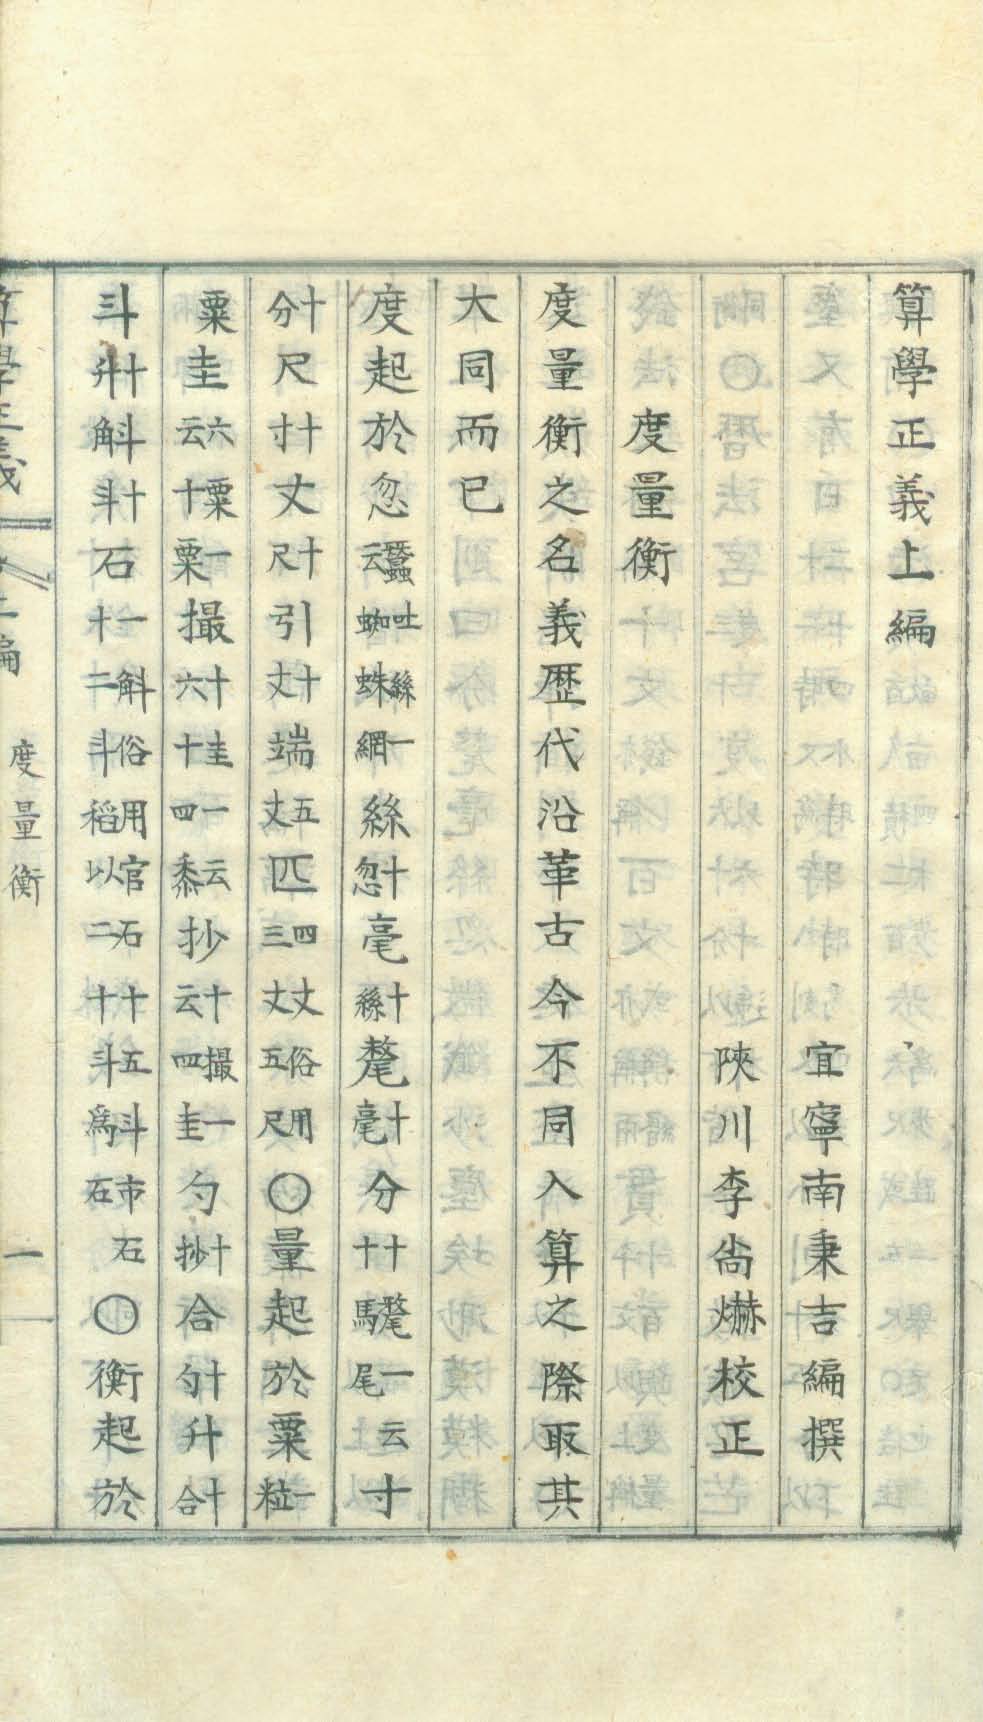 算學正義上編
宜寧南秉吉編撰
陜川李尙爀校正
度量衡
度量衡之名義歷代沿革古今不同入算之際取其
大同而已
度起於忽蠶吐絲一云蜘蛛網絲十忽毫十絲氂十毫分十氂一云十馬尾寸
十分尺十寸丈十尺引十丈端五丈匹四丈俗用三丈五尺〇量起於粟一粒
粟圭六粟一云十粟撮十圭一云六十四黍抄十撮一云四圭勺十抄合十勺升十合
斗十升斛十斗石一斛俗用官石十五斗市石十二斗稻以二十斗爲石〇衡起於
算學正義 上編 度量衡 一